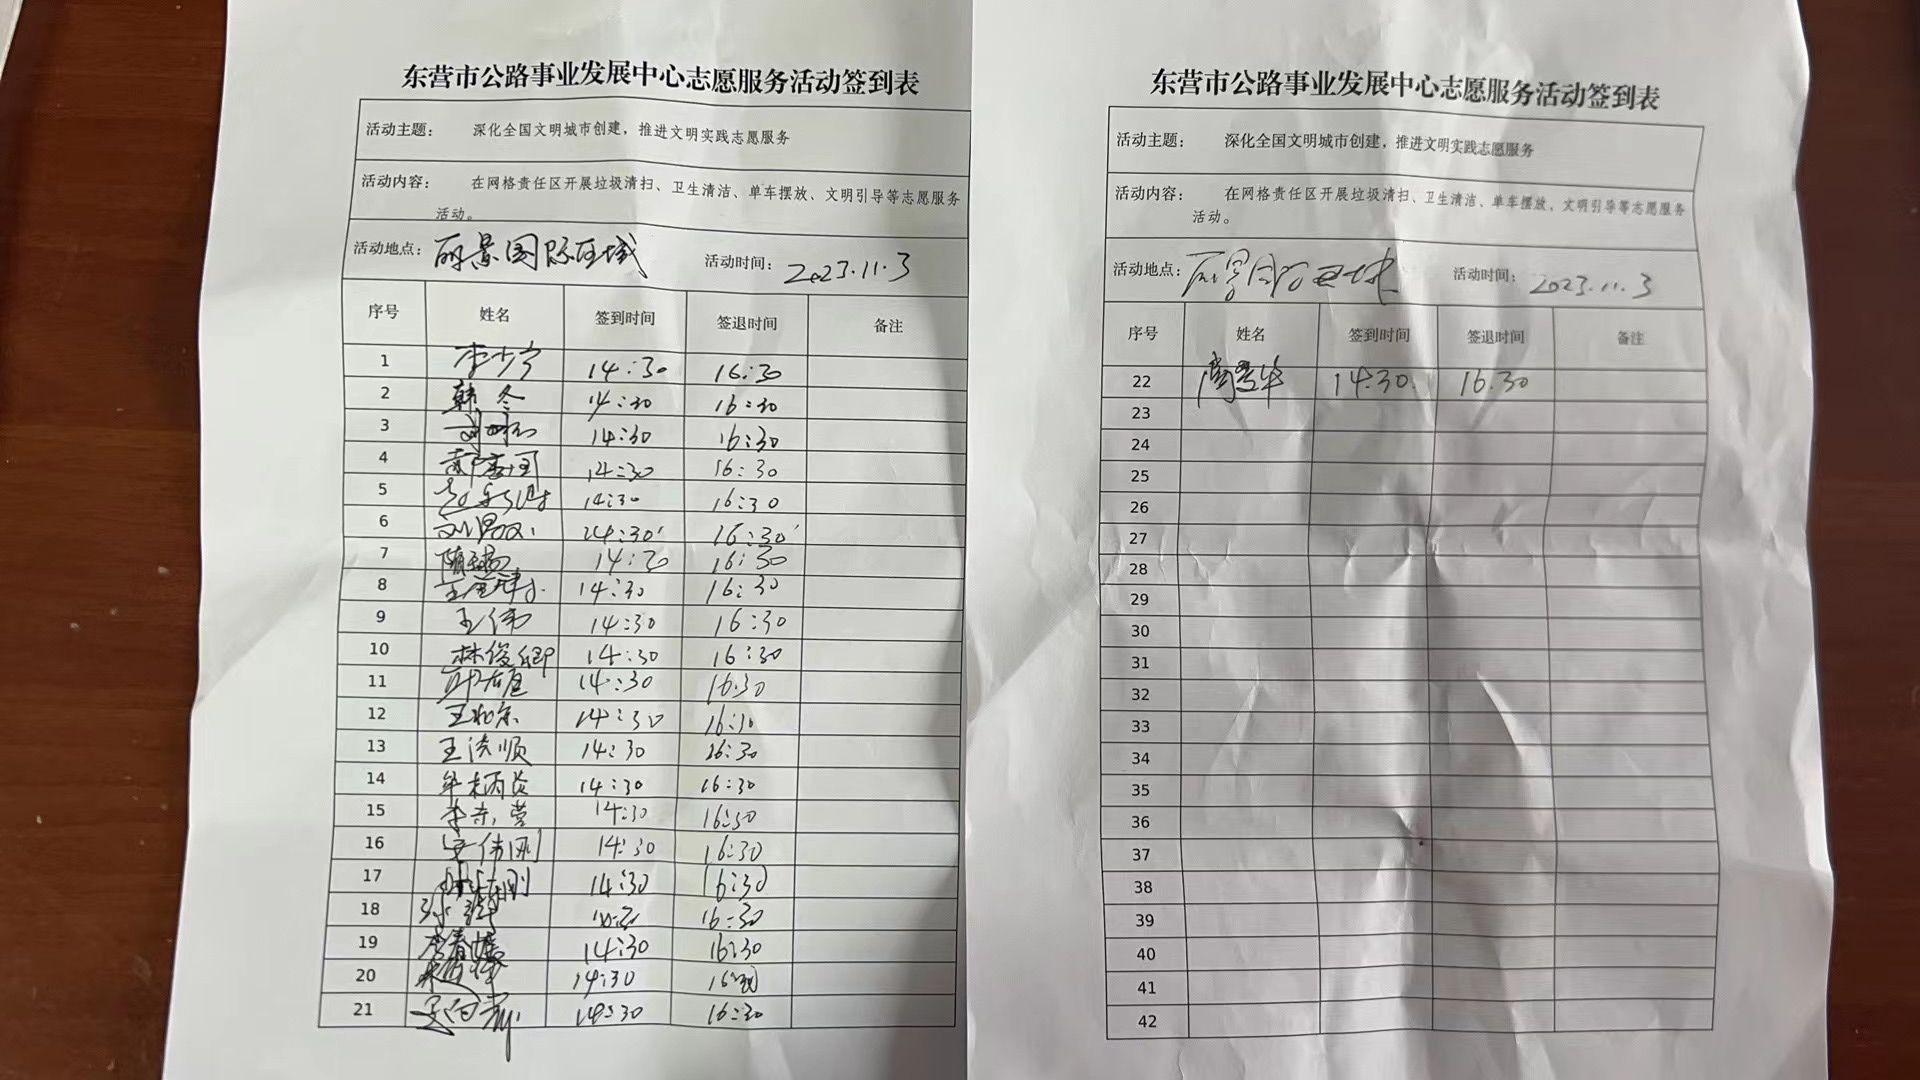 东营市公路事业发展中心志愿服务活动签到表
活动主题： 深化全国文明城市创建，推进文明实践志愿服务
活动内容： 在网格责任区开展垃圾清扫、卫生清洁、单车摆放、文明引导等志愿服务
活动。
活动地点： 丽景国际区域 活动时间： 2023.11.3
序号 姓名 签到时间 签退时间 备注
1 李少宁 14:30 16:30
2 韩冬 14:30 16:30
3 14:30 16:30
4 14:30 16:30
5 14:30 16:30
6 14:30 16:30
7 14:30 16:30
8 14:30 16:30
9 王伟 14:30 16:30
10 林俊卿 14:30 16:30
11 14:30 16:30
12 14:30 16:10
13 王洪顺 14:30 16:30
14 14:30 16:30
15 李东营 14:30 16:30
16 安伟刚 14:30 16:30
17 14:30 16:30
18 16:30
19 李春 14:30 16:30
20 14:30 16:30
21 14:30 16:30
东营市公路事业发展中心志愿服务活动签到表
活动主题： 深化全国文明城市创建，推进文明实践志愿服务
活动内容： 在网格责任区开展垃圾清扫、卫生清洁、单车摆放、文明引导等志愿服务
活动。
活动地点： 丽景国际区域 活动时间： 2023.11.3
序号 姓名 签到时间 签退时间 备注
22 14:30 16.30
23
24
25
26
27
28
29
30
31
32
33
34
35
36
37
38
39
40
41
42